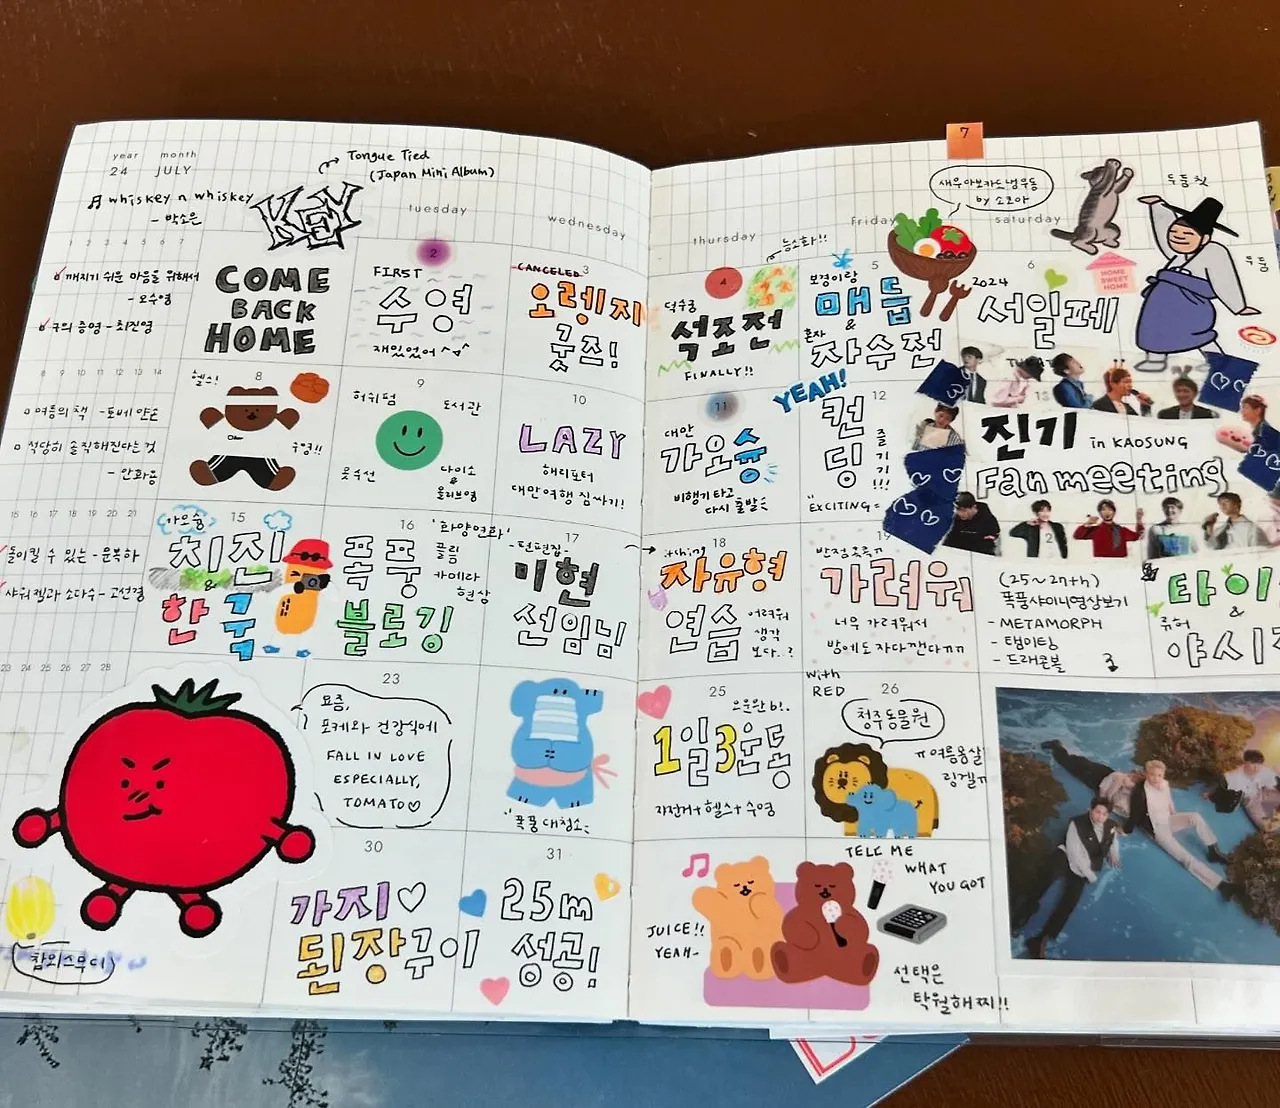 year month
24 JULY
♬ whiskey n whiskey
- 박소은
Tongue Tied
(Japan Mini Album)
KEY
tuesday
wednesday
thursday
Friday
saturday
7
1 2 3 4 5 6 7
깨지기 쉬운 마음을 위해서
- 오수영
구의 증명 - 최진영
8 9 10 11 12 13 14
여름의 책 - 토베 얀손
적당히 솔직해진다는 것
- 안화용
15 16 17 18 19 20 21
돌이킬 수 있는 - 문목하
샤워젤과 소다수 - 고선경
23 24 25 26 27 28
COME
BACK
HOME
2
FIRST
수영
재밌었어 ^^
CANCELED 3
오렌지
굿즈!
4
능소화!!
덕수궁
석조전
FINALLY!!
5
보경이랑
매듭
&
혼자
자수전
새우아보카도냉우동
by 소코아
6
2024
서일페
HOME
SWEET
HOME
두둠칫
두둠
8
헬스!
수영!!
9
허쉬펌
도서관
옷수선
다이소
&
올리브영
10
LAZY
해리포터
대만여행 짐싸기!
11
대만
가오슝
비행기 타고
다시 출발
YEAH!
12
컨
딩
즐
기
기
!!!
"EXCITING"
13
진기 in KAOSUNG
Fan meeting
15
가오슝
치진
&
한국
16
폭풍
블로깅
'화양연화'
필름
카메라
현상
17
- 턴편집 -
미현
선임님
18
itching
자유형
연습
어려워
생각
보다..?
19
반점 목록ㅠ
가려워
너무 가려워서
밤에도 자다깬다ㅠㅠ
(25~27th)
폭풍샤이니영상보기
- METAMORPH
- 탬미팅
- 드래곤볼
타이
&
야시
23
요즘,
포케와 건강식에
FALL IN LOVE
ESPECIALLY,
TOMATO♡
"폭풍 대청소"
25
오운완 6!.
1일3운동
자전거+헬스+수영
with
RED
26
청주동물원
ㅠ여름옹살
링겔ㅠ
참외스무디
30
가지♡
된장구이
31
25m
성공!
JUICE!!
YEAH~
TELL ME
WHAT
YOU GOT
선택은
탁월해찌!!